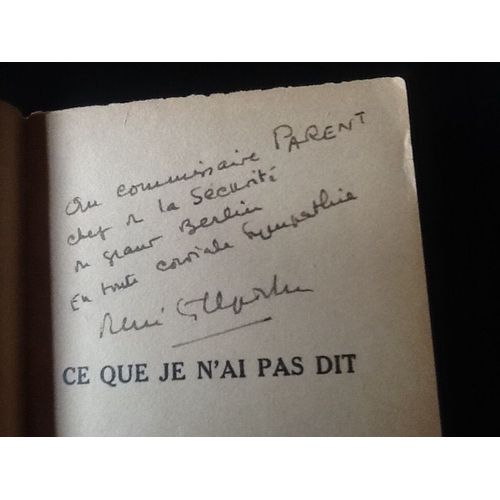 Au commissaire PARENT
chef de la Sécurité
du grand Berlin
En toute cordiale Sympathie
René
CE QUE JE N'AI PAS DIT